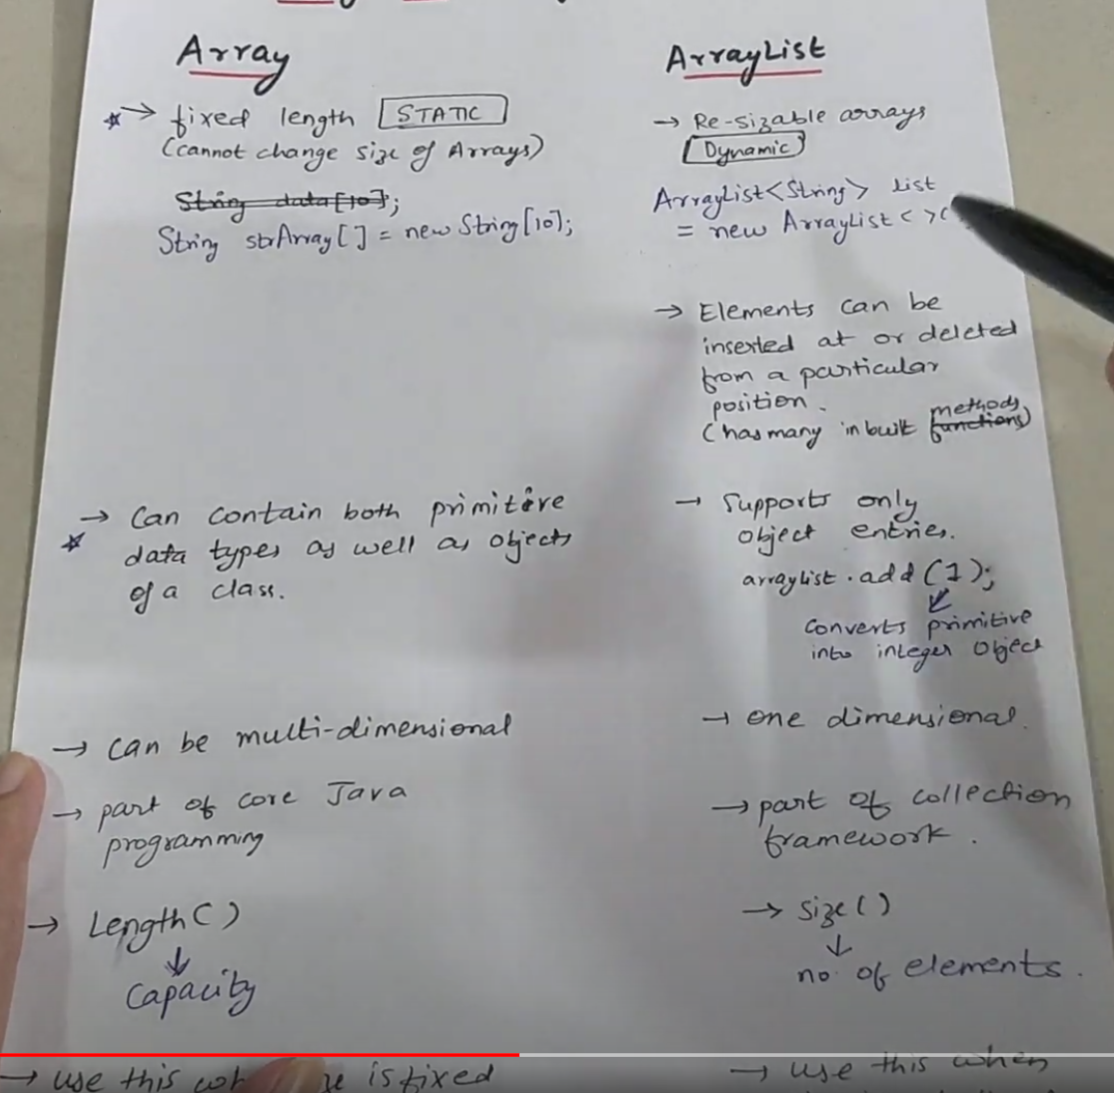 Array
fixed length STATIC
(cannot change size of Arrays)
String data[10];
String strArray[] = new String[10];
→ Can contain both primitive
data types as well as objects
of a class.
→ can be multi-dimensional
→ part of core Java
programming
→ Length()
↓
Capacity
→ use this is fixed
ArrayList
→ Re-sizable arrays
Dynamic
ArrayList<String> list
= new ArrayList< >(
→ Elements can be
inserted at or deleted
from a particular
position.
methods
(has many inbuilt functions)
→ Supports only
object entries.
arraylist.add(1);
converts primitive
into integer object
→ one dimensional.
→ part of collection
framework.
→ size()
↓
no. of elements.
→ use this when